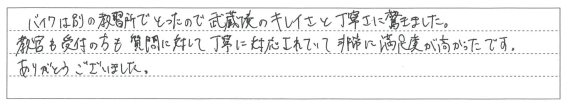 バイクは別の教習所でとったので武蔵境のキレイさと丁寧さに驚きました。
教官も受付の方も質問に対して丁寧に対応されていて非常に満足度が高かったです。
ありがとうございました。